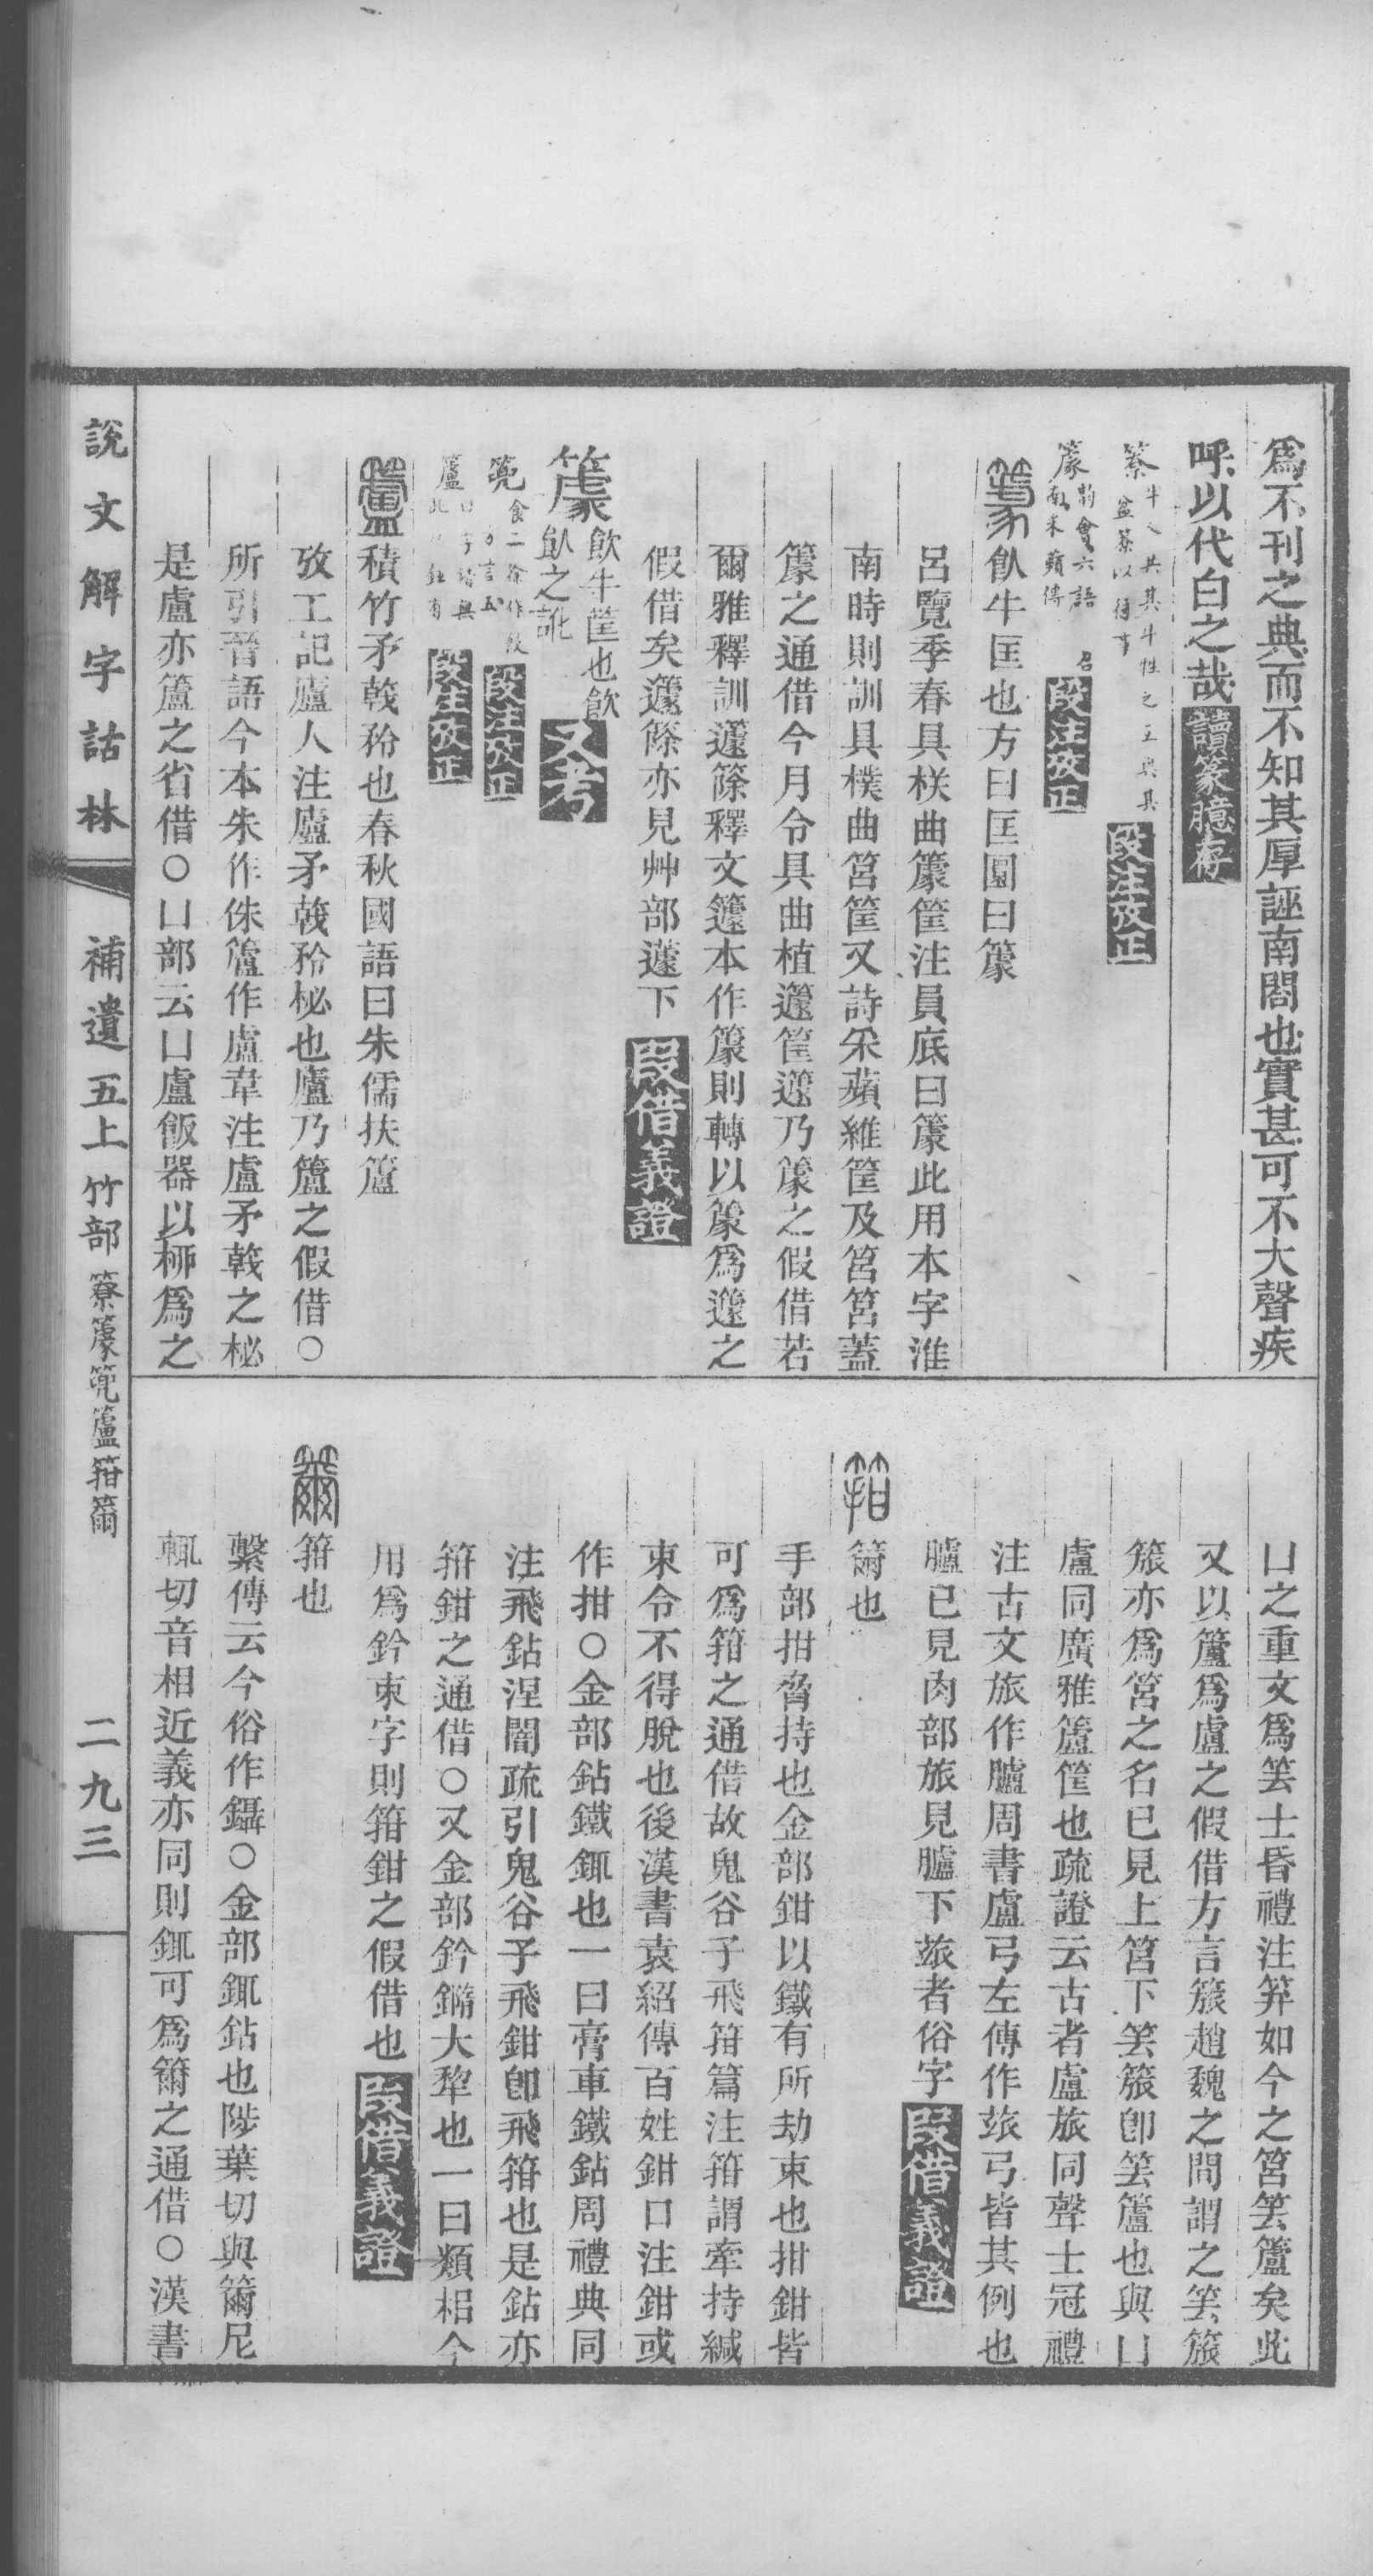 爲不刊之典而不知其厚誣南閣也實甚可不大聲疾
呼以代白之哉 讀篆臆存
簝 牛人共其牛牲之互與其
盆簝以待事 段注攷正
籇 韵會六語
南采蘋傳 段注攷正
飤牛匡也方曰匡圜曰籇
呂覽季春具栚曲籇筐注員底曰籇此用本字淮
南時則訓具樸曲筥筐又詩采蘋維筐及筥筥蓋
籇之通借今月令具曲植籧筐籧乃籇之假借若
爾雅釋訓籧篨釋文籧本作籇則轉以籇爲籧之
假借矣籧篨亦見艸部蘧下 段借義證
籇 飮牛筐也飮
飤之訛 又考
篼 食二徐作
段注攷正
籚
段注攷正
籚 積竹矛戟矜也春秋國語曰朱儒扶籚
攷工記廬人注廬矛戟矜柲也廬乃籚之假借○
所引晉語今本朱作侏籚作盧韋注盧矛戟之柲
是盧亦籚之省借○凵部云凵盧飯器以柳爲之
凵之重文爲笑士昏禮注笲如今之筥笑籚矣此
又以籚爲盧之假借方言簇趙魏之間謂之笑簇
簇亦爲筥之名已見上筥下笑簇卽笑籚也與凵
盧同廣雅籚筐也疏證云古者盧旅同聲士冠禮
注古文旅作臚周書盧弓左傳作玈弓皆其例也
臚已見肉部旅見臚下玈者俗字 段借義證
箝 籋也
手部拑脅持也金部鉗以鐵有所劫束也拑鉗皆
可爲箝之通借故鬼谷子飛箝篇注箝謂牽持緘
束令不得脫也後漢書袁紹傳百姓鉗口注鉗或
作拑○金部鉆鐵鋷也一曰膏車鐵鉆周禮典同
注飛鉆涅闇疏引鬼谷子飛鉗卽飛箝也是鉆亦
箝鉗之通借○又金部鈐鏅大犂也一曰類梠今
用爲鈐束字則箝鉗之假借也 段借義證
籋 箝也
繫傳云今俗作鑷○金部鋷鉆也陟葉切與籋尼
輒切音相近義亦同則鋷可爲籋之通借○漢書
說文解字詁林 補遺 五上 竹部 簝籇篼籚箝籋 二九三